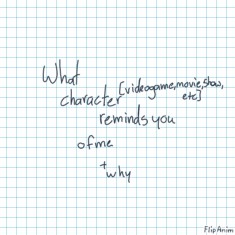 What
character [videogame, movie, show, etc]
reminds you
of me
+ why
FlipAnim